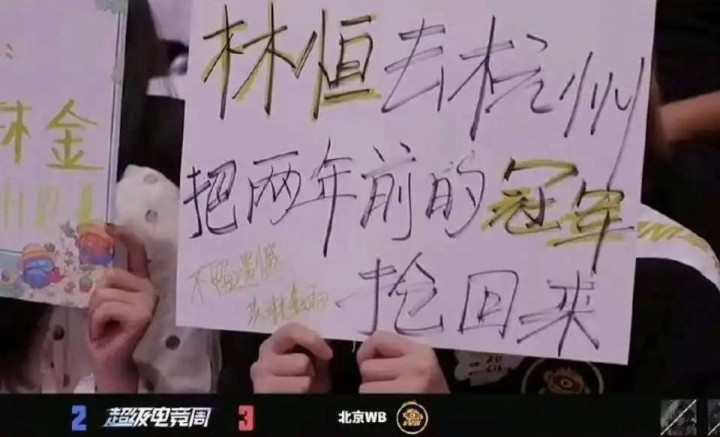 林恒去杭州
把两年前的冠军
抢回来
金
2 超级电竞周 3 北京WB